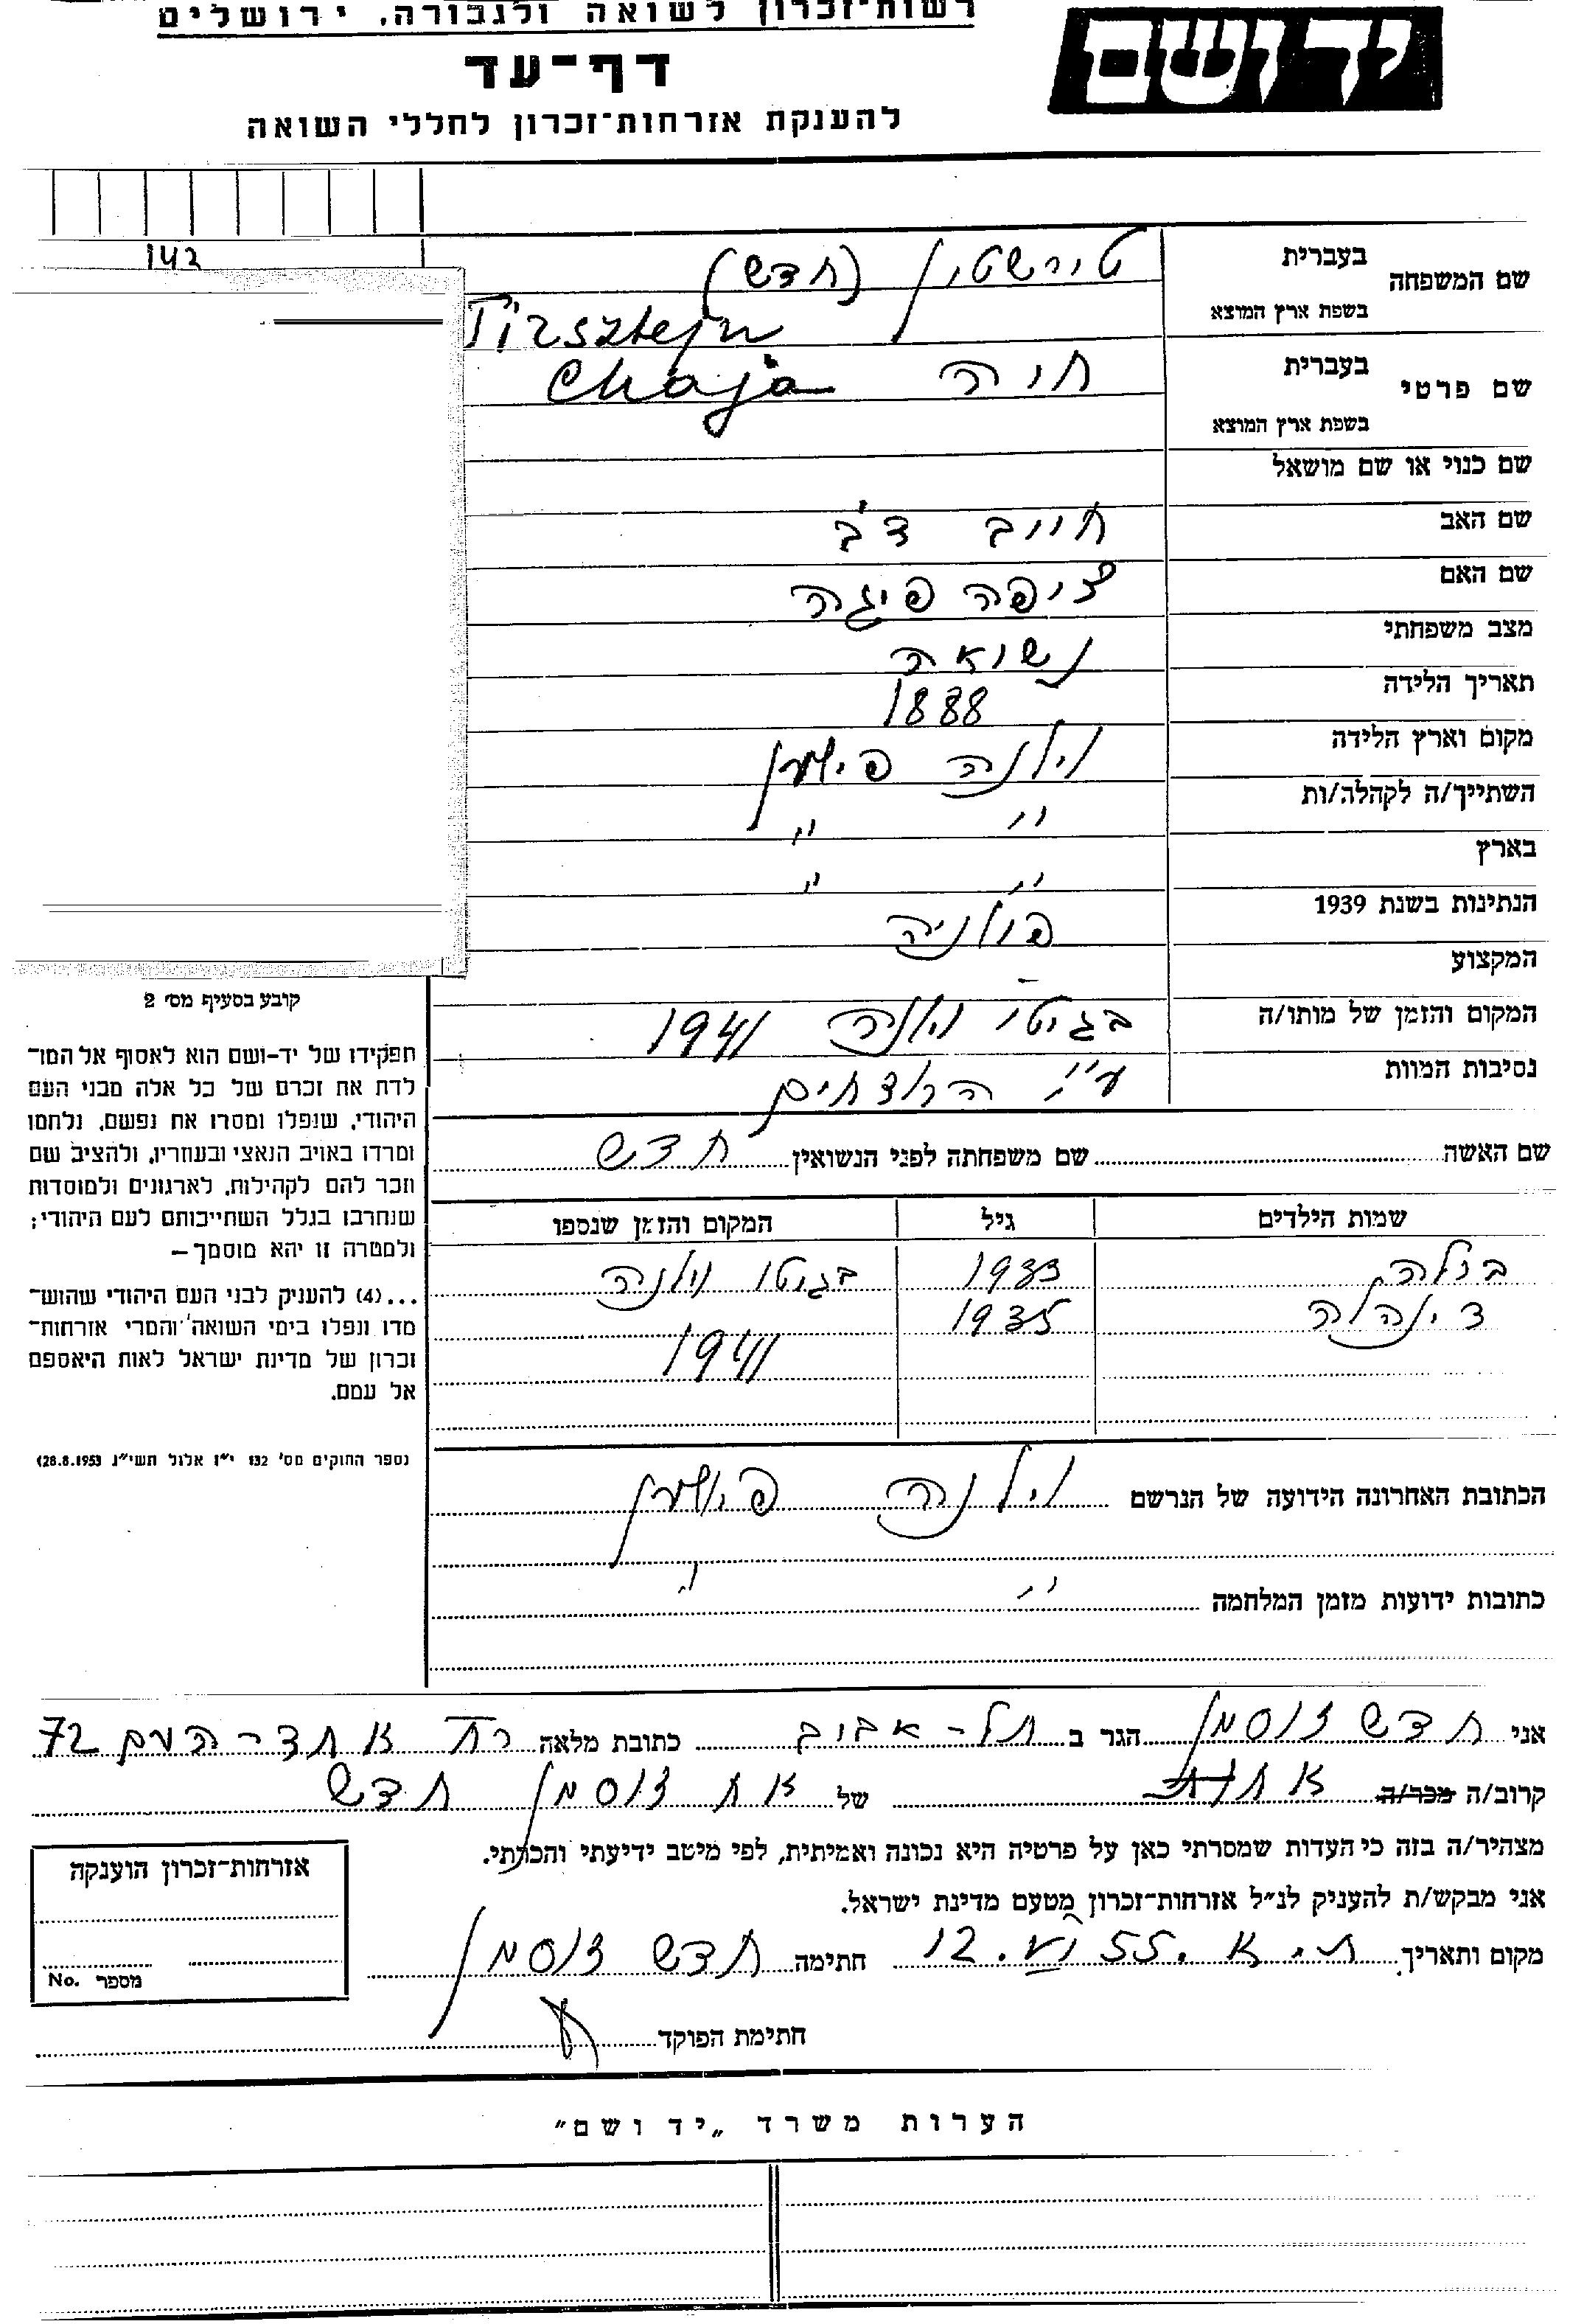 רשות־זכרון לשואה ולגבורה, ירושלים
יד ושם
דף־עד
להענקת אזרחות־זכרון לחללי השואה
142
שם המשפחה בעברית טירשטין (חדש)
בשפת ארץ המוצא Tirsztejn
שם פרטי בעברית חיה Chaja
בשפת ארץ המוצא
שם כנוי או שם מושאל
שם האב חייב דב
שם האם ציפה פיגה
מצב משפחתי נשואה
תאריך הלידה 1888
מקום וארץ הלידה וילנה פולין
השתייך/ה לקהלה/ות " "
בארץ " "
הנתינות בשנת 1939 פולניה
המקצוע -
המקום והזמן של מותו/ה בגיטו וילנה 1941
נסיבות המוות ע"י הרוצחים
קובע בסעיף מס׳ 2
תפקידו של יד–ושם הוא לאסוף אל המו־
לדת את זכרם של כל אלה מבני העם
היהודי, שנפלו ומסרו את נפשם, נלחמו
ומרדו באויב הנאצי ובעוזריו, ולהציב שם
וזכר להם לקהילות, לארגונים ולמוסדות
שנחרבו בגלל השתייכותם לעם היהודי;
ולמטרה זו יהא מוסמך –
...(4) להעניק לבני העם היהודי שהוש־
מדו ונפלו בימי השואה והמרי אזרחות־
זכרון של מדינת ישראל לאות היאספם
אל עמם.
(ספר החוקים מס׳ 132 י״ז אלול תשי״ג 28.8.1953)
שם האשה שם משפחתה לפני הנשואין חדש
שמות הילדים גיל המקום והזמן שנספו
בילה 1933 בגיטו וילנה
דינהלה 1935
1941
הכתובת האחרונה הידועה של הנרשם וילנה
כתובות ידועות מזמן המלחמה " "
אני חדש זוסמן הגר ב תל-אביב כתובת מלאה רח אחד-העם 72
קרוב/ה מכר/ה של אח זוסמן חדש
מצהיר/ה בזה כי העדות שמסרתי כאן על פרטיה היא נכונה ואמיתית, לפי מיטב ידיעתי והכרתי.
אני מבקש/ת להעניק לנ״ל אזרחות־זכרון מטעם מדינת ישראל.
מקום ותאריך ת.א. 12.VI.55 חתימה חדש זוסמן
חתימת הפוקד
אזרחות־זכרון הוענקה
מספר No.
הערות משרד „יד ושם״